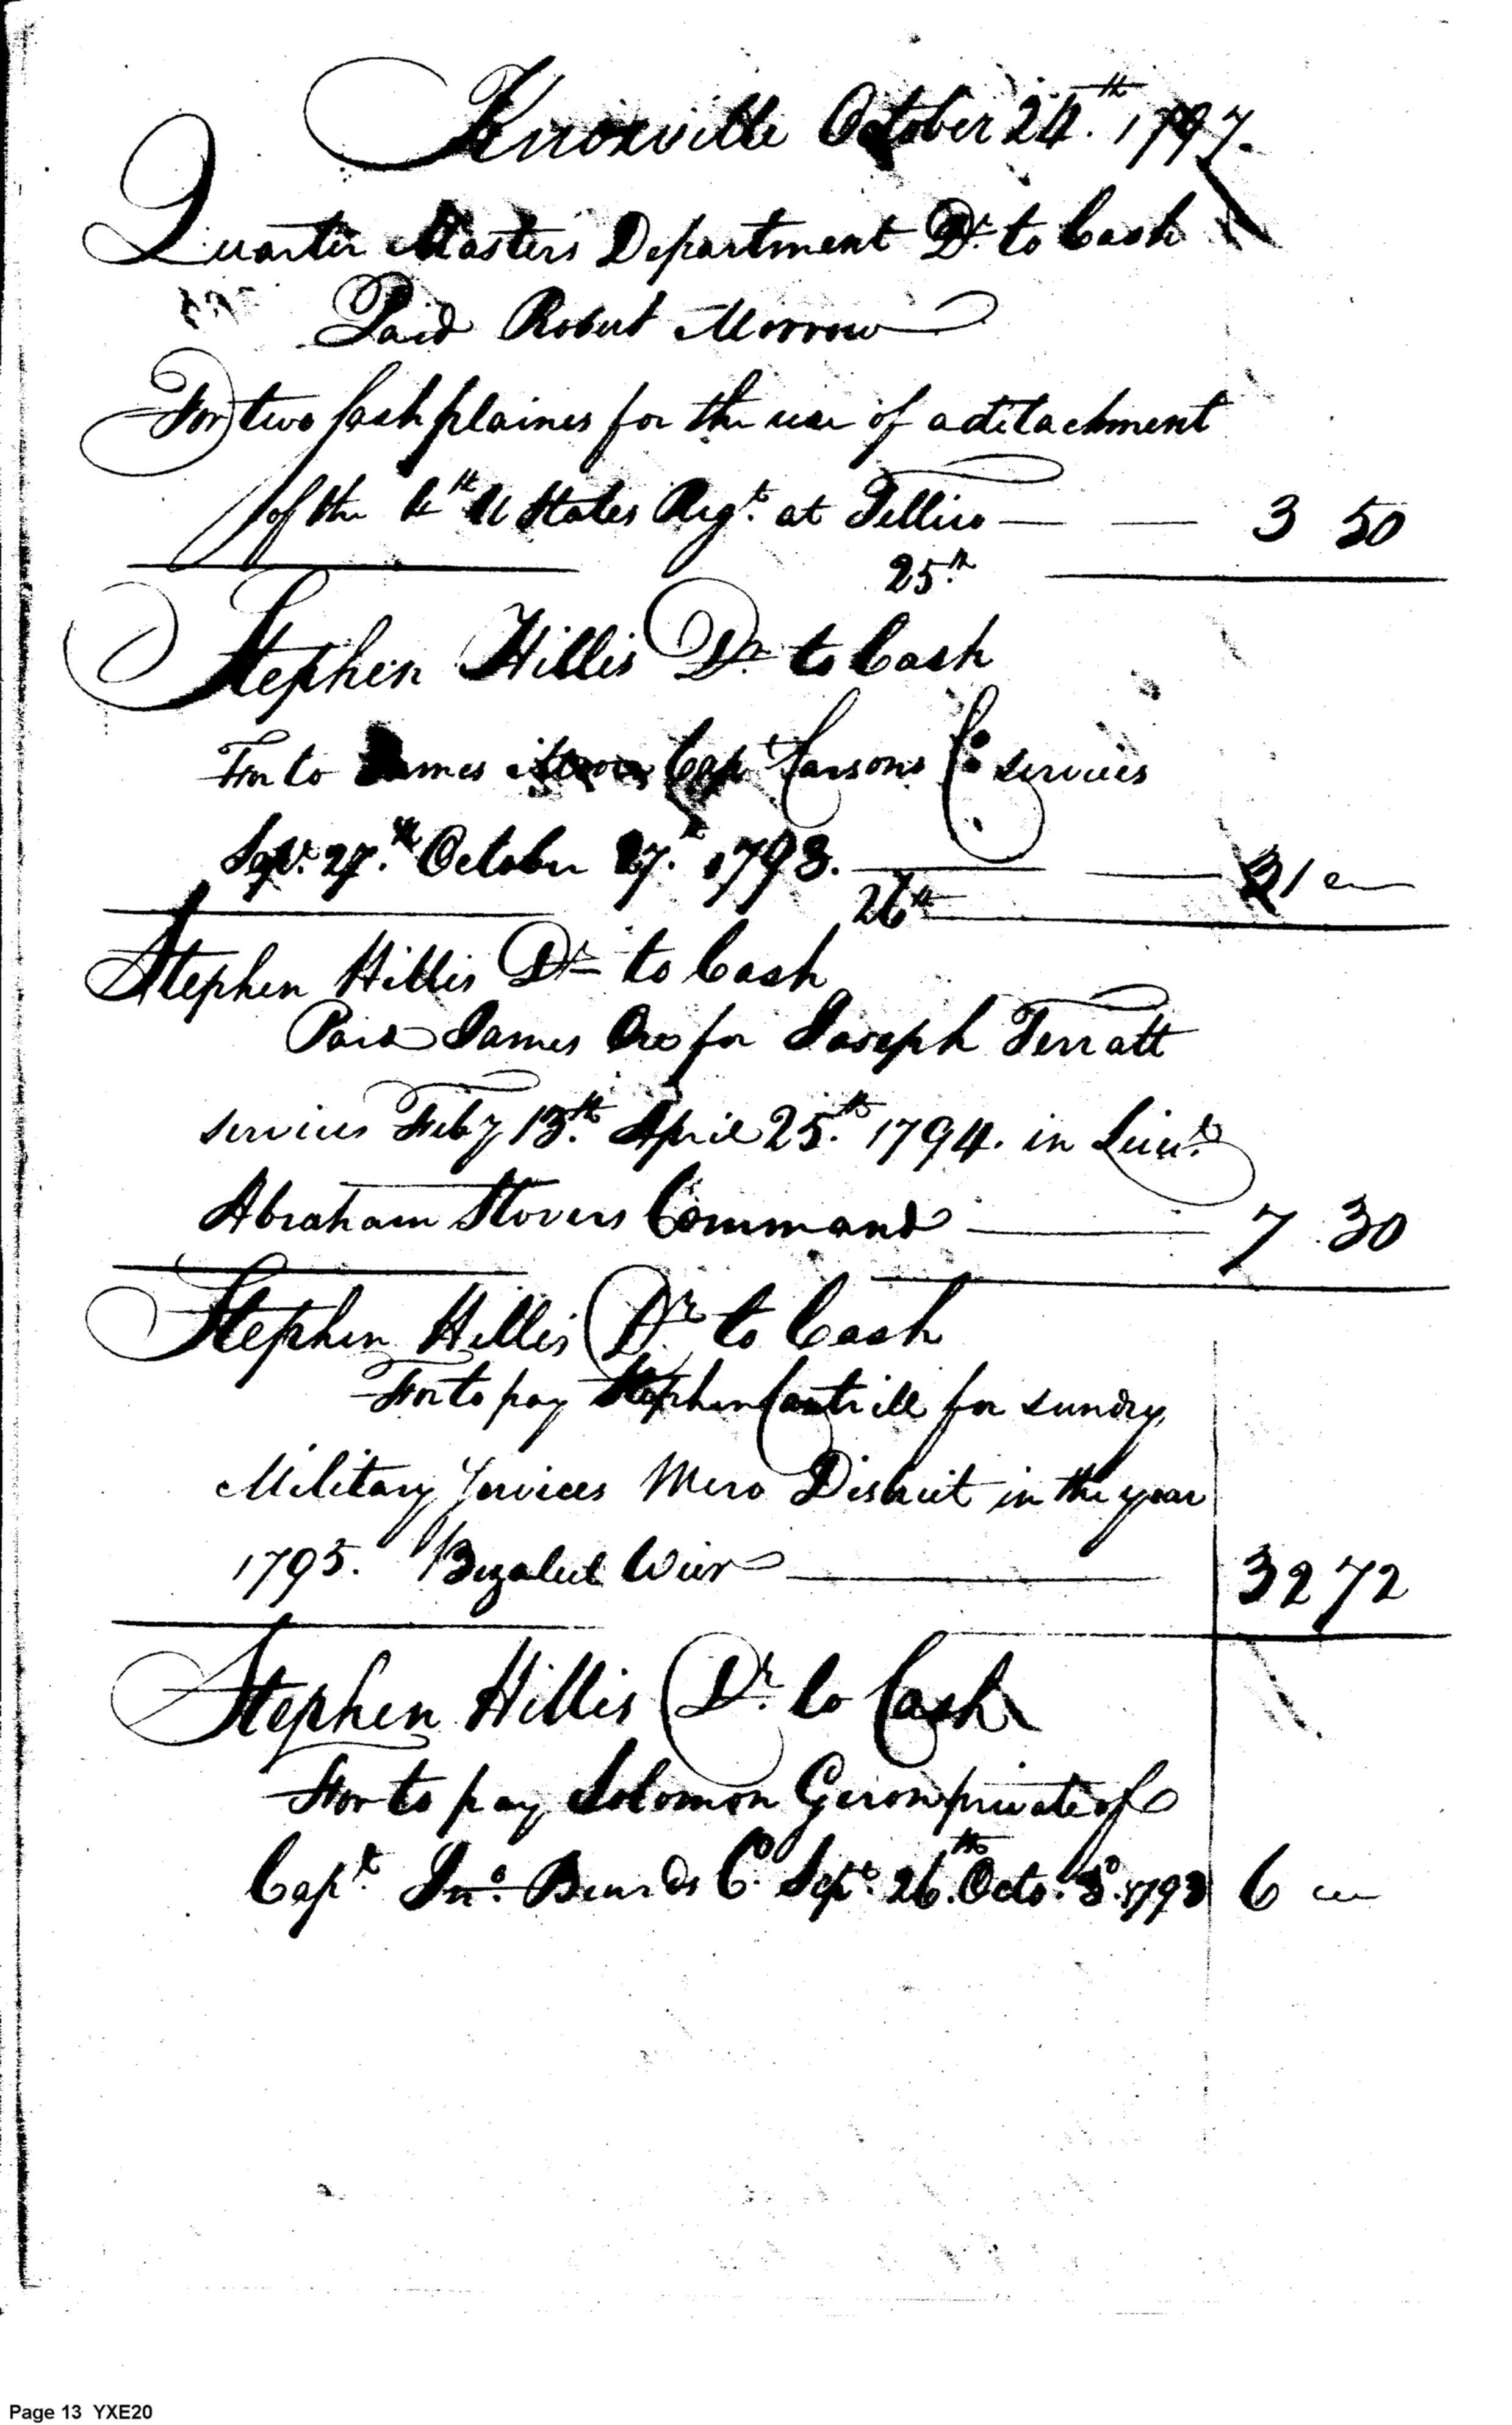 Knoxville October 24.th 1797.
Quarter Masters Department Dr. to Cash
Paid Robert Morrow
For two sash plaines for the use of a detachment
of the 4th U States Regt. at Tellico — — 3 50
25.th
Stephen Hillis Dr to Cash
For to James Capt Carsons Co services
Sept. 27.th October 27.th 1793. — — 31 "
26th
Stephen Hillis Dr to Cash
Paid James Ore for Joseph Terratt
services Feby 13.th April 25.th 1794. in Lieut.
Abraham Stovers Command — 7 30
Stephen Hillis Dr to Cash
For to pay Stephen Cantrill for sundry
Military Services Mero District in the year
1795. Bezaleel Wier — 32 72
Stephen Hillis Dr. to Cash
For to pay Solomon Geron private of
Capt. Jno. Beards Co. Sept. 26.th Octo. 1793 6 "
Page 13 YXE20